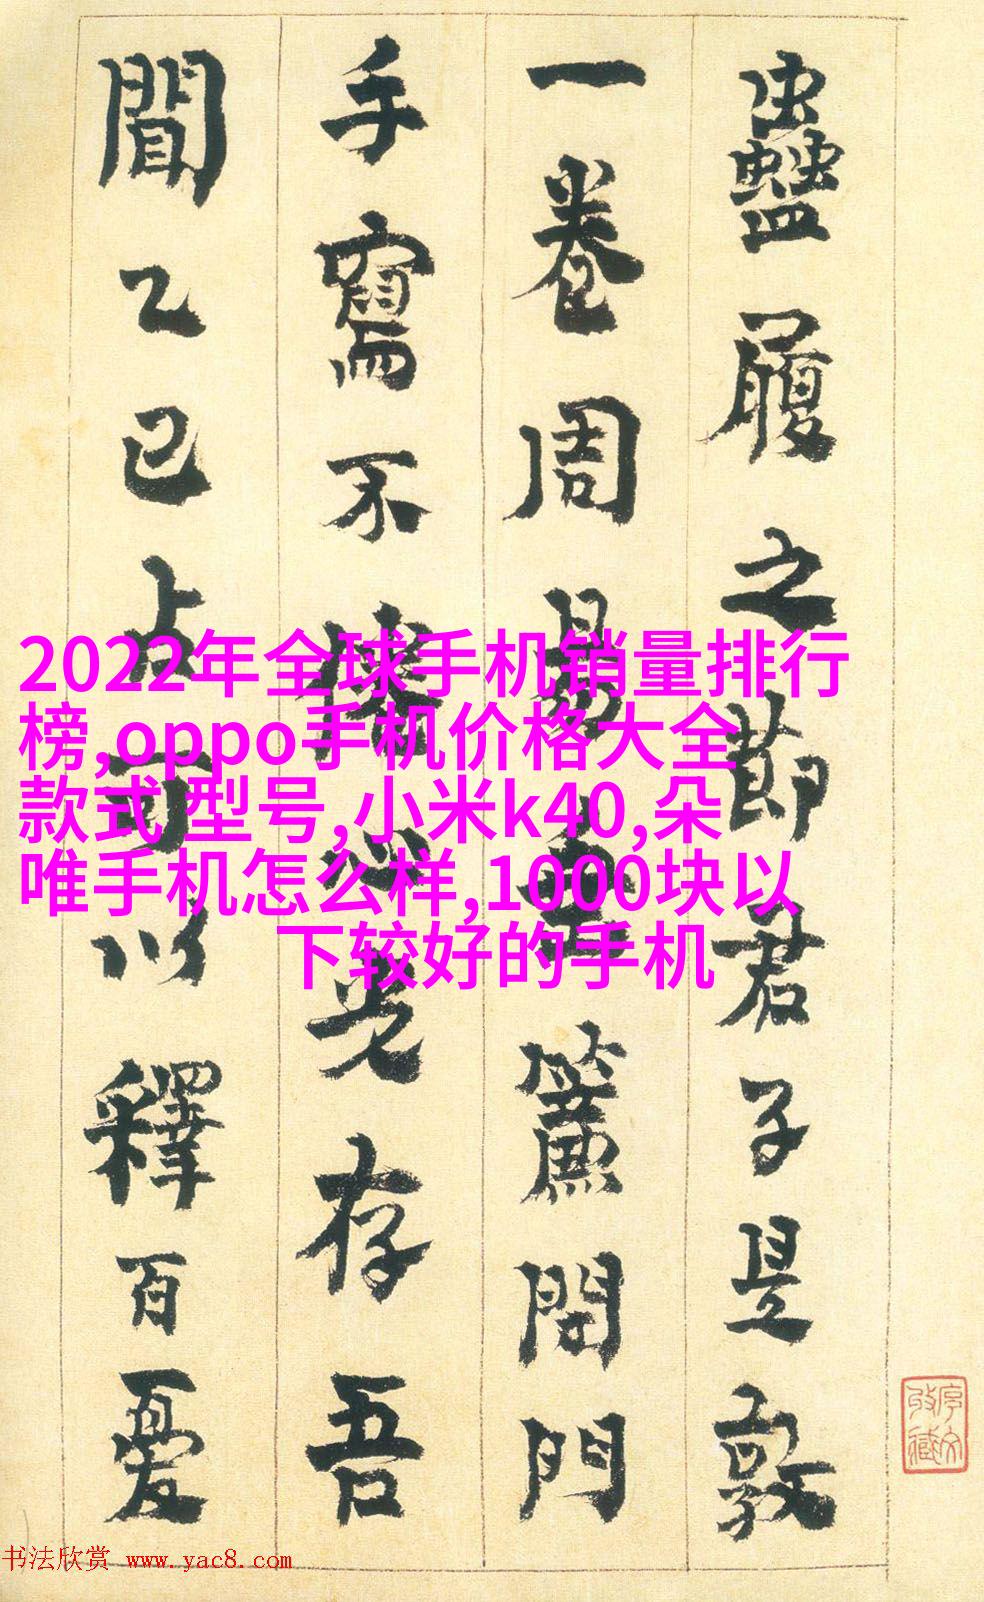 蠱履之節君子是敦
一卷周易垂簾閉門
手寫不存吾
聞乙巳占可以釋百憂
2022年全球手机销量排行
榜,oppo手机价格大全
款式 型号,小米k40,朵
唯手机怎么样,1000块以
下较好的手机
书法欣赏 www.yac8.com